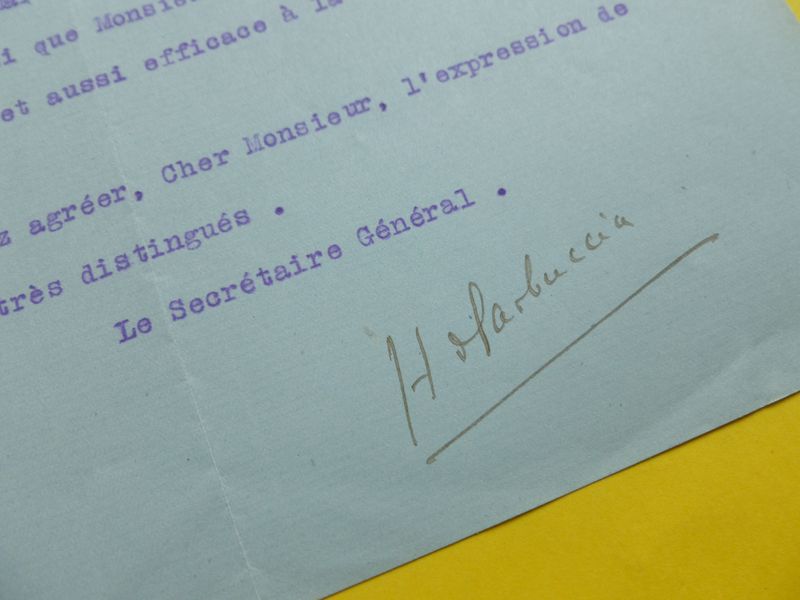 i que Monsieu
et aussi efficace à la
z agréer, Cher Monsieur, l'expression de
très distingués .
Le Secrétaire Général .
H d'arbuccia